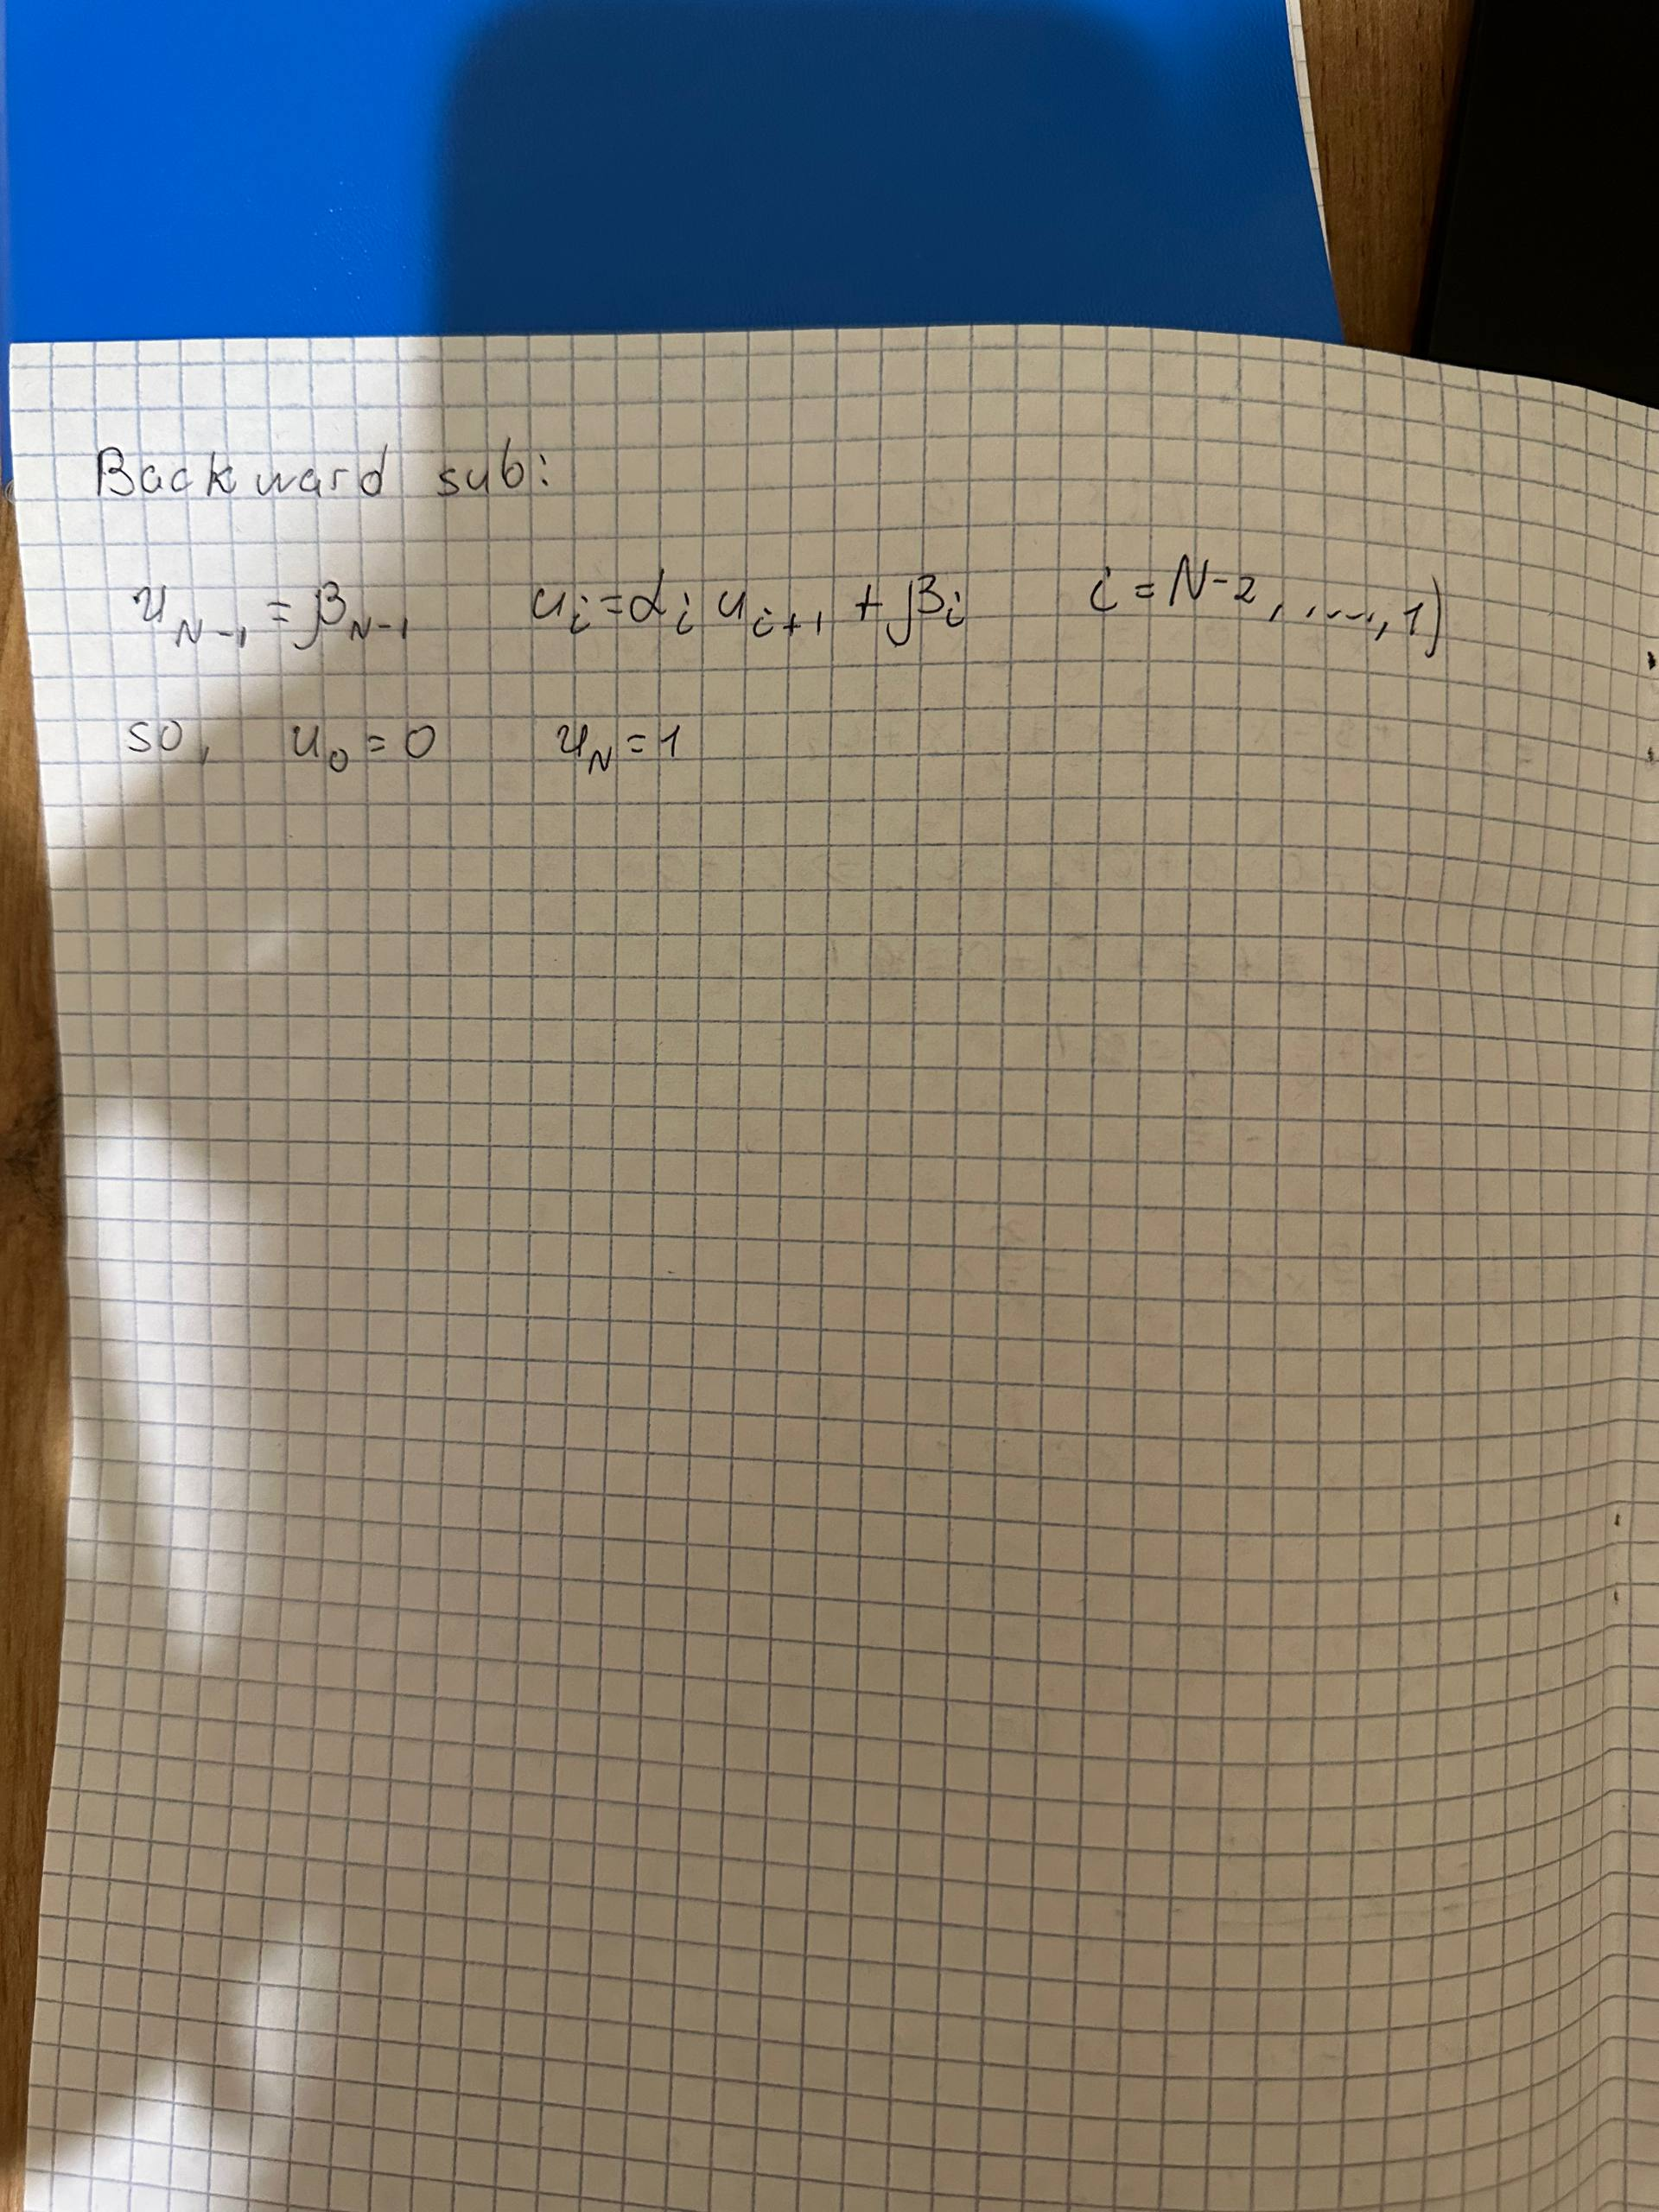 Backward sub:
u_{N-1} = β_{N-1} u_i = α_i u_{i+1} + β_i i = N-2, ...., 1)
so, u_0 = 0 u_N = 1